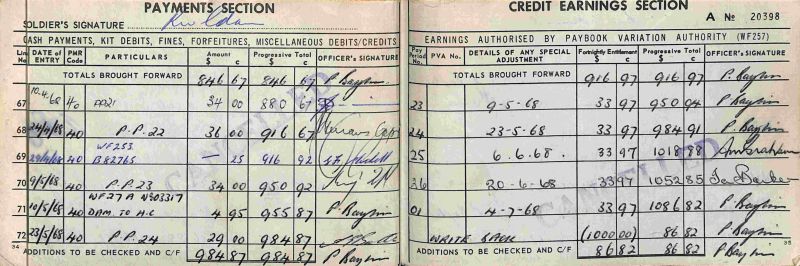 PAYMENTS SECTION
SOLDIER'S SIGNATURE
CASH PAYMENTS, KIT DEBITS, FINES, FORFEITURES, MISCELLANEOUS DEBITS/CREDITS
Line No DATE OF ENTRY PMR Code PARTICULARS Amount $ c Progressive Total $ c OFFICER'S SIGNATURE
TOTALS BROUGHT FORWARD 846 67 846 67
67 10.4.68 40 PP21 34 00 880 67
68 24/4/68 40 P.P.22 36 00 916 67
WF253
69 40 B82765 — 25 916 92
70 9/5/68 40 P.P.23 34 00 950 92
WF27A No03317
71 10/5/68 40 DAM. TO H.C 4 95 955 87
72 23/5/68 40 P.P.24 29 00 984 87
34 ADDITIONS TO BE CHECKED AND C/F 984 87 984 87
CANCELLED
CREDIT EARNINGS SECTION
A № 20398
EARNINGS AUTHORISED BY PAYBOOK VARIATION AUTHORITY (WF257)
Pay Period No. PVA No. DETAILS OF ANY SPECIAL ADJUSTMENT Fortnightly Entitlement $ c Progressive Total $ c OFFICER'S SIGNATURE
TOTALS BROUGHT FORWARD 916 97 916 97
23 9-5-68 33 97 950 94
24 23-5-68 33 97 984 91
25 6.6.68. 33 97 1018 88
26 20-6-68 33 97 1052 85
01 4-7-68 33 97 1086 82
WRITE BACK (1000 00) 86 82
ADDITIONS TO BE CHECKED AND C/F 86 82 86 82 35
CANCELLED